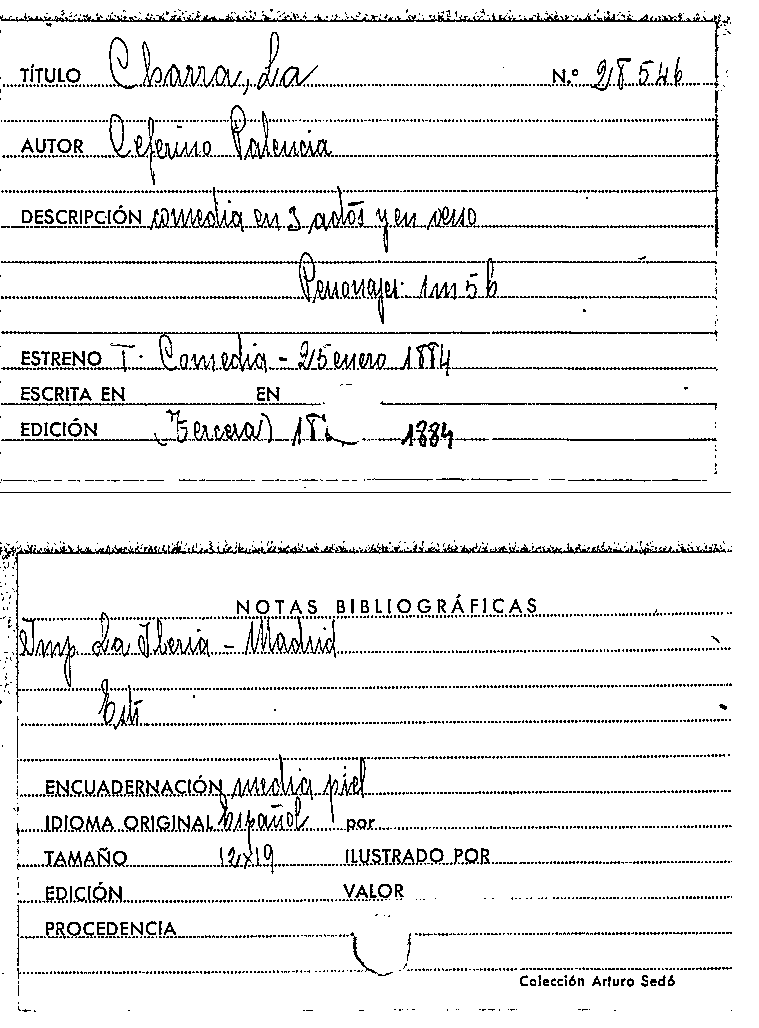 TÍTULO Charra, La N.º 28546
AUTOR Ceferino Palencia
DESCRIPCIÓN comedia en 3 actos y en verso
Personajes: 1m 5h
ESTRENO T. Comedia - 25 enero 1884
ESCRITA EN EN
EDICIÓN (Tercera) 1884
NOTAS BIBLIOGRÁFICAS
Imp. La Iberia - Madrid
ENCUADERNACIÓN media piel
IDIOMA ORIGINAL Español por
TAMAÑO 12x19 ILUSTRADO POR
EDICIÓN VALOR
PROCEDENCIA
Colección Arturo Sedó